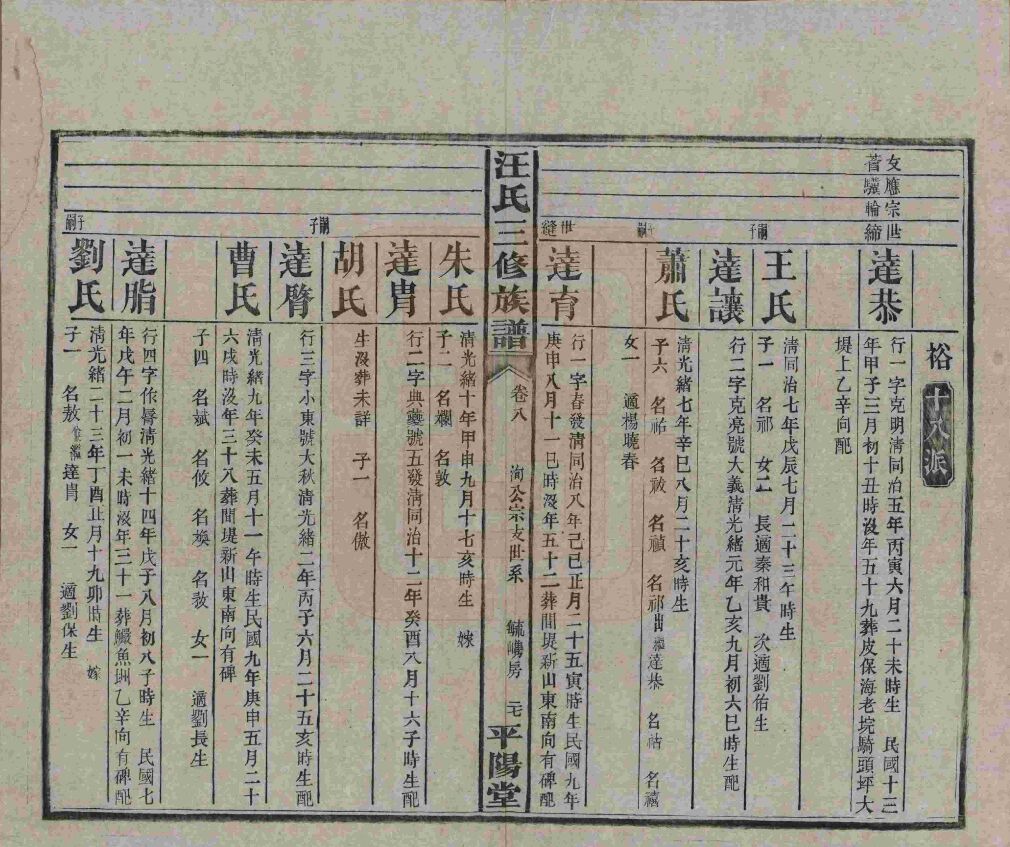 裕
十八派
達恭
行一字克明清同治五年丙寅六月二十未時生 民國十三
年甲子三月初十丑時沒年五十九葬皮保海老垸騎頭坪大
堤上乙辛向配
王氏
清同治七年戊辰七月二十三午時生
子一 名祁 女二 長適秦和貴 次適劉佑生
達讓
行二字克亮號大義清光緒元年乙亥九月初六巳時生配
蕭氏
清光緒七年辛巳八月二十亥時生
子六 名祐 名祓 名禎 名祁出繼達恭 名祜 名禧
女一 適楊曉春
達育
行一字春發清同治八年己巳正月二十五寅時生民國九年
庚申八月十一巳時沒年五十二葬間堤新山東南向有碑配
汪氏三修族譜
卷八
洵公宗支世系
毓㠠房
二七
平陽堂
朱氏
清光緒十年甲申九月十七亥時生 嫁
子二 名斕 名敦
達胄
行二字典夔號五發清同治十二年癸酉八月十六子時生配
胡氏
生沒葬未詳 子一 名傲
達膺
行三字小東號大秋清光緒二年丙子六月二十五亥時生配
曹氏
清光緒九年癸未五月十一午時生民國九年庚申五月二十
六戌時沒年三十八葬間堤新山東南向有碑
子四 名斌 名攸 名煥 名敎 女一 適劉長生
達脂
行四字依脣清光緒十四年戊子八月初八子時生 民國七
年戊午二月初一未時沒年三十一葬鱖魚洲乙辛向有碑配
劉氏
清光緒二十三年丁酉正月十九卯時生 嫁
子一 名敖兼繼達胄 女一 適劉保生